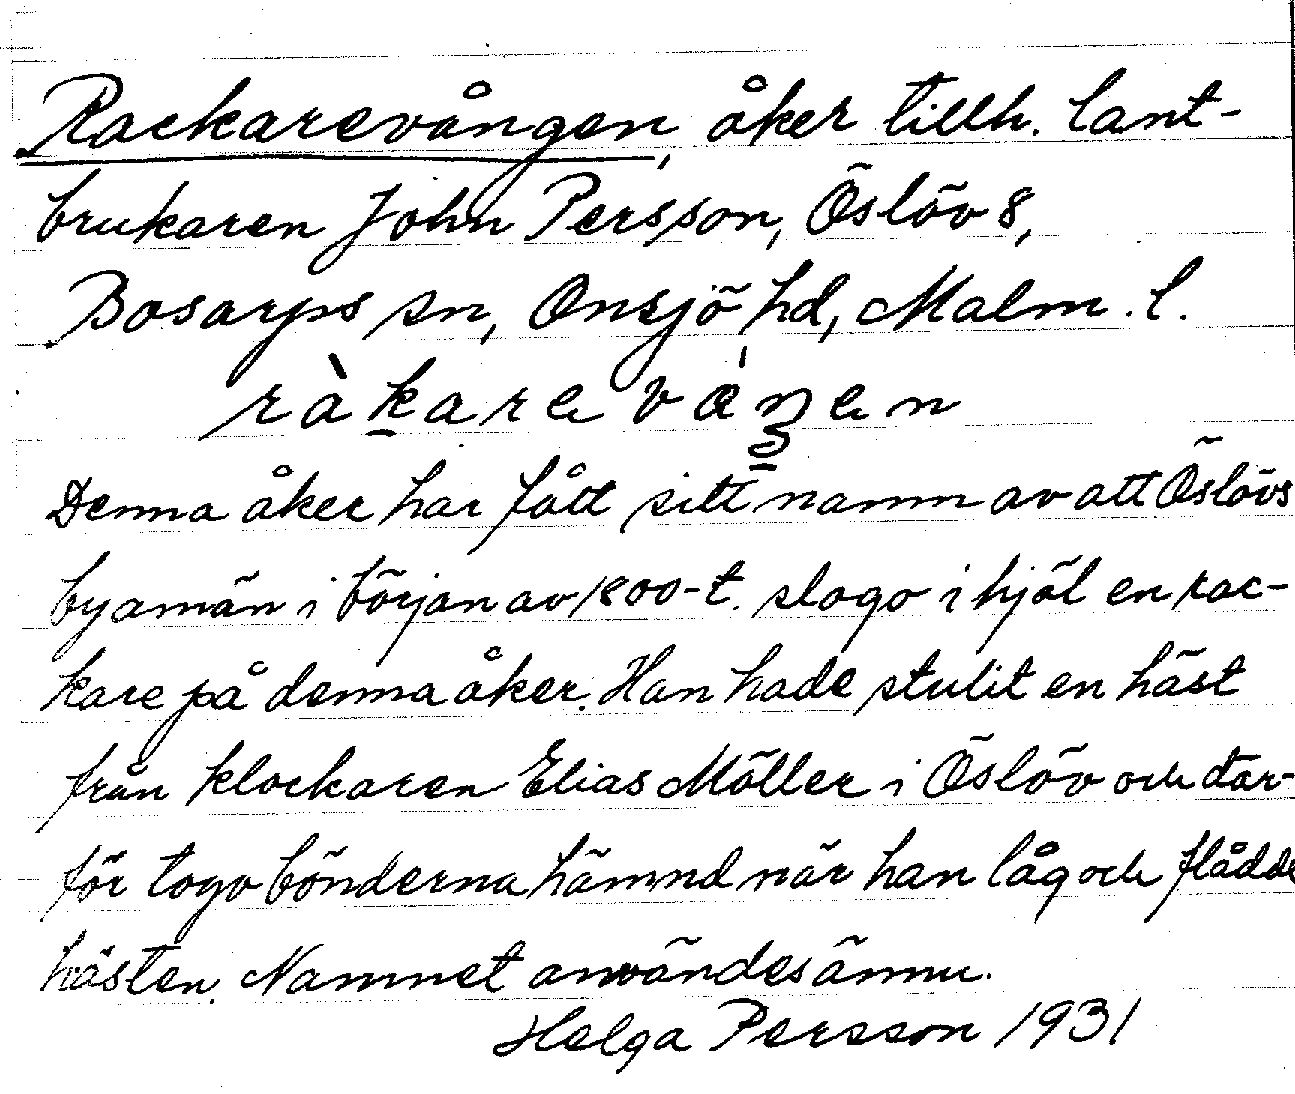 Rackarevången, åker tillh. lant-
brukaren John Persson, Öslöv 8,
Bosarps sn, Onsjö hd, Malm. l.
ràkarevaŋen
Denna åker har fått sitt namn av att Öslövs
byamän i början av 1800-t. slogo ihjäl en rac-
kare på denna åker. Han hade stulit en häst
från klockaren Elias Möller i Öslöv och där-
för togo bönderna hämnd när han låg och flådde
hästen. Namnet användes ännu.
Helga Persson 1931